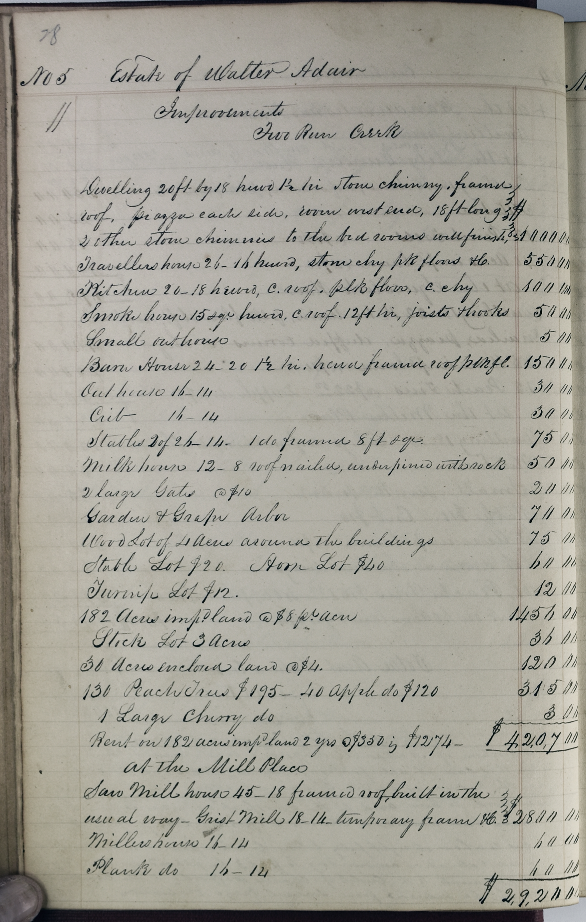 78
No 5 Estate of Walter Adair
11 Improvements
Two Run Creek
Dwelling 20ft by 18 hewd 1½ hi stone chimny. framed
roof, piazza each side, room west end, 18ft long
2 other stone chimnies to the bed rooms well finishd $1000 00
Travellers house 26-16 hewd, stone chy plk floors &c. 550 00
Kitchen 20-18 hewd, c. roof. plk floor, c. chy 100 00
Smoke house 15 sqr hewd, c. roof. 12ft hi, joists & hooks 50 00
Small outhouse 5 00
Barn House 24-20 1½ hi. hewd framed roof plk fl. 150 00
Out house 16-14 30 00
Crib 16-14 30 00
Stables 2 of 26-14- 1 do framed 8ft sqr. 75 00
Milk house 12-8 roof nailed, underpined with rock 50 00
2 large Gates @ $10 20 00
Garden & Grape Arbor 70 00
Wood Lot of 4 Acres around the buildings 75 00
Stable Lot $20. Horse Lot $40 60 00
Turnip Lot $12. 12 00
182 Acres impd land @ $8 pr acre 1456 00
Stock Lot 3 Acres 36 00
30 Acres enclosed land @ $4. 120 00
130 Peach Trees $195- 40 apple do $120 315 00
1 Large Cherry do 3 00
Rent on 182 acres impd land 2 yrs @ $350 is $1274- $4,207 00
at the Mill Place
Saw Mill house 45-18 framed roof, built in the
usual way- Grist Mill 18-14- temporary frame &c. $2800 00
Millers house 16-14 60 00
Plank do 16-12 60 00
$2,920 00